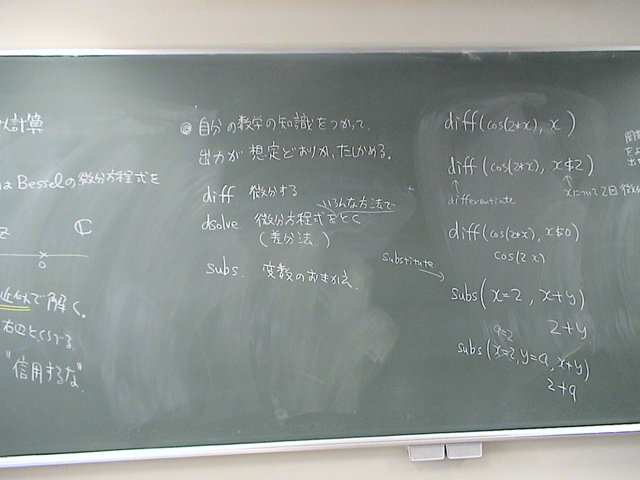 計算
Besselの微分方程式を
ℂ
0
で解く。
"信用するな"
◎ 自分の数学の知識をつかって、
出力が想定どおりか、たしかめる。
diff 微分する
いろんな方法で
dsolve 微分方程式をとく
(差分法)
subs. 変数のおきかえ
substitute
diff(cos(2*x), x)
diff(cos(2*x), x$2)
differentiate
xについて2回微
diff(cos(2*x), x$0)
cos(2x)
subs(x=2, x+y)
2+y
subs(x=2, y=a, x+y)